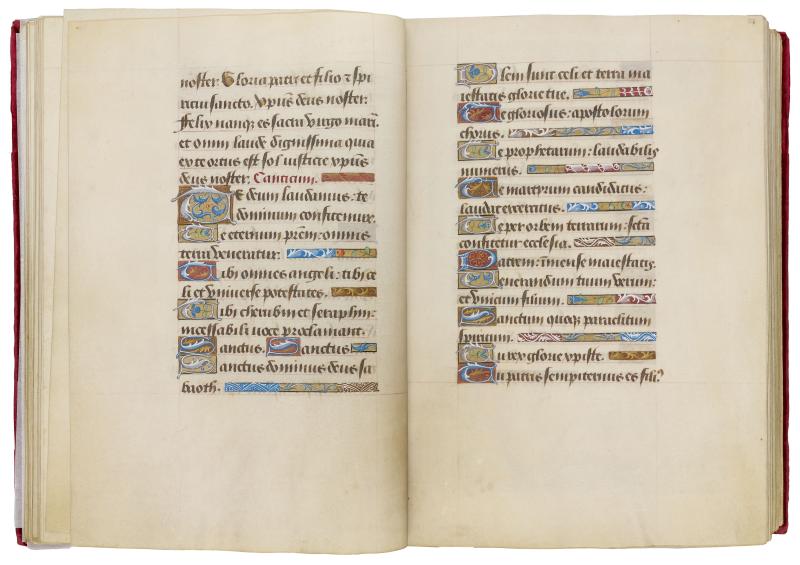 noster. Gloria patri et filio ⁊ spi
ritui sancto. Xp̄us deus noster.
Felix nanq; es sacra virgo maria
et omni laude dignissima quia
ex te ortus est sol iusticie xp̄us
deus noster. Canticum.
Te deum laudamus: te
dominum confitemur.
Te eternum prēm: omnis
terra veneratur.
Tibi omnes angeli: tibi ce
li et vniverse potestates.
Tibi cherubin et seraphin:
incessabili voce proclamant.
Sanctus. Sanctus
Sanctus dominus deus sa
baoth.
Pleni sunt celi et terra ma
iestatis glorie tue.
Te gloriosus: apostolorum
chorus.
Te prophetarum: laudabilis
numerus.
Te martyrum candidatus:
laudat exercitus.
Te per orbem terrarum: sctā
confitetur ecclesia.
Patrem: īmense maiestatis.
Venerandum tuum verum:
et vnicum filium.
Sanctum quoq; paraclitum
spiritum.
Tu rex glorie xpiste.
Tu patris sempiternus es fili9